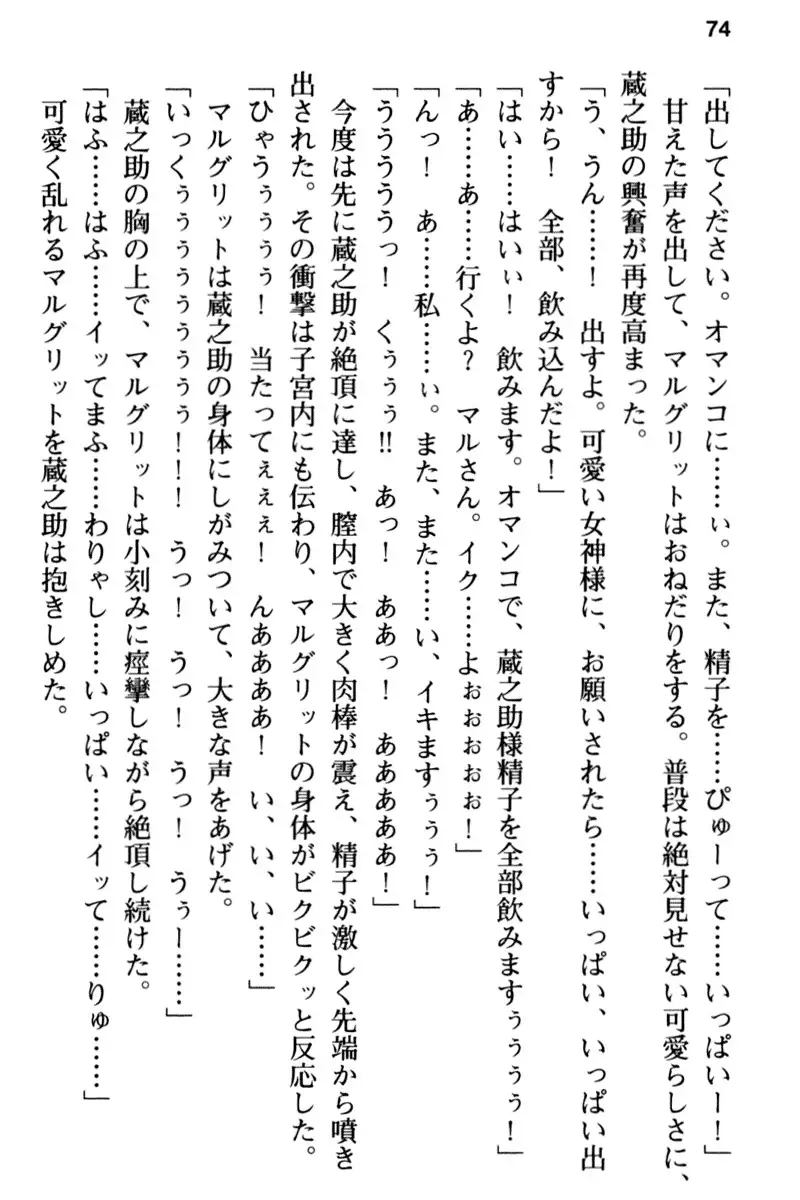 74
「出してください。オマンコに……ぃ。また、精子を……ぴゅーって……いっぱいー！」
甘えた声を出して、マルグリットはおねだりをする。普段は絶対見せない可愛らしさに、
蔵之助の興奮が再度高まった。
「う、うん……！　出すよ。可愛い女神様に、お願いされたら……いっぱい、いっぱい出
すから！　全部、飲み込んだよ！」
「はい……はいぃ！　飲みます。オマンコで、蔵之助様精子を全部飲みますぅぅぅぅ！」
「あ……あ……行くよ？　マルさん。イク……よぉぉぉぉぉ！」
「んっ！　あ……私……ぃ。また、また……い、イキますぅぅぅ！」
「うううううっ！　くぅぅぅ!!　あっ！　ああっ！　あああああ！」
今度は先に蔵之助が絶頂に達し、膣内で大きく肉棒が震え、精子が激しく先端から噴き
出された。その衝撃は子宮内にも伝わり、マルグリットの身体がビクビクッと反応した。
「ひゃうぅぅぅぅ！　当たってぇぇぇ！　んああああ！　い、い、い……」
マルグリットは蔵之助の身体にしがみついて、大きな声をあげた。
「いっくぅぅぅぅぅぅぅぅ！！！　うっ！　うっ！　うっ！　うぅー……」
蔵之助の胸の上で、マルグリットは小刻みに痙攣しながら絶頂し続けた。
「はふ……はふ……イッてまふ……わりゃし……いっぱい……イッて……りゅ……」
可愛く乱れるマルグリットを蔵之助は抱きしめた。